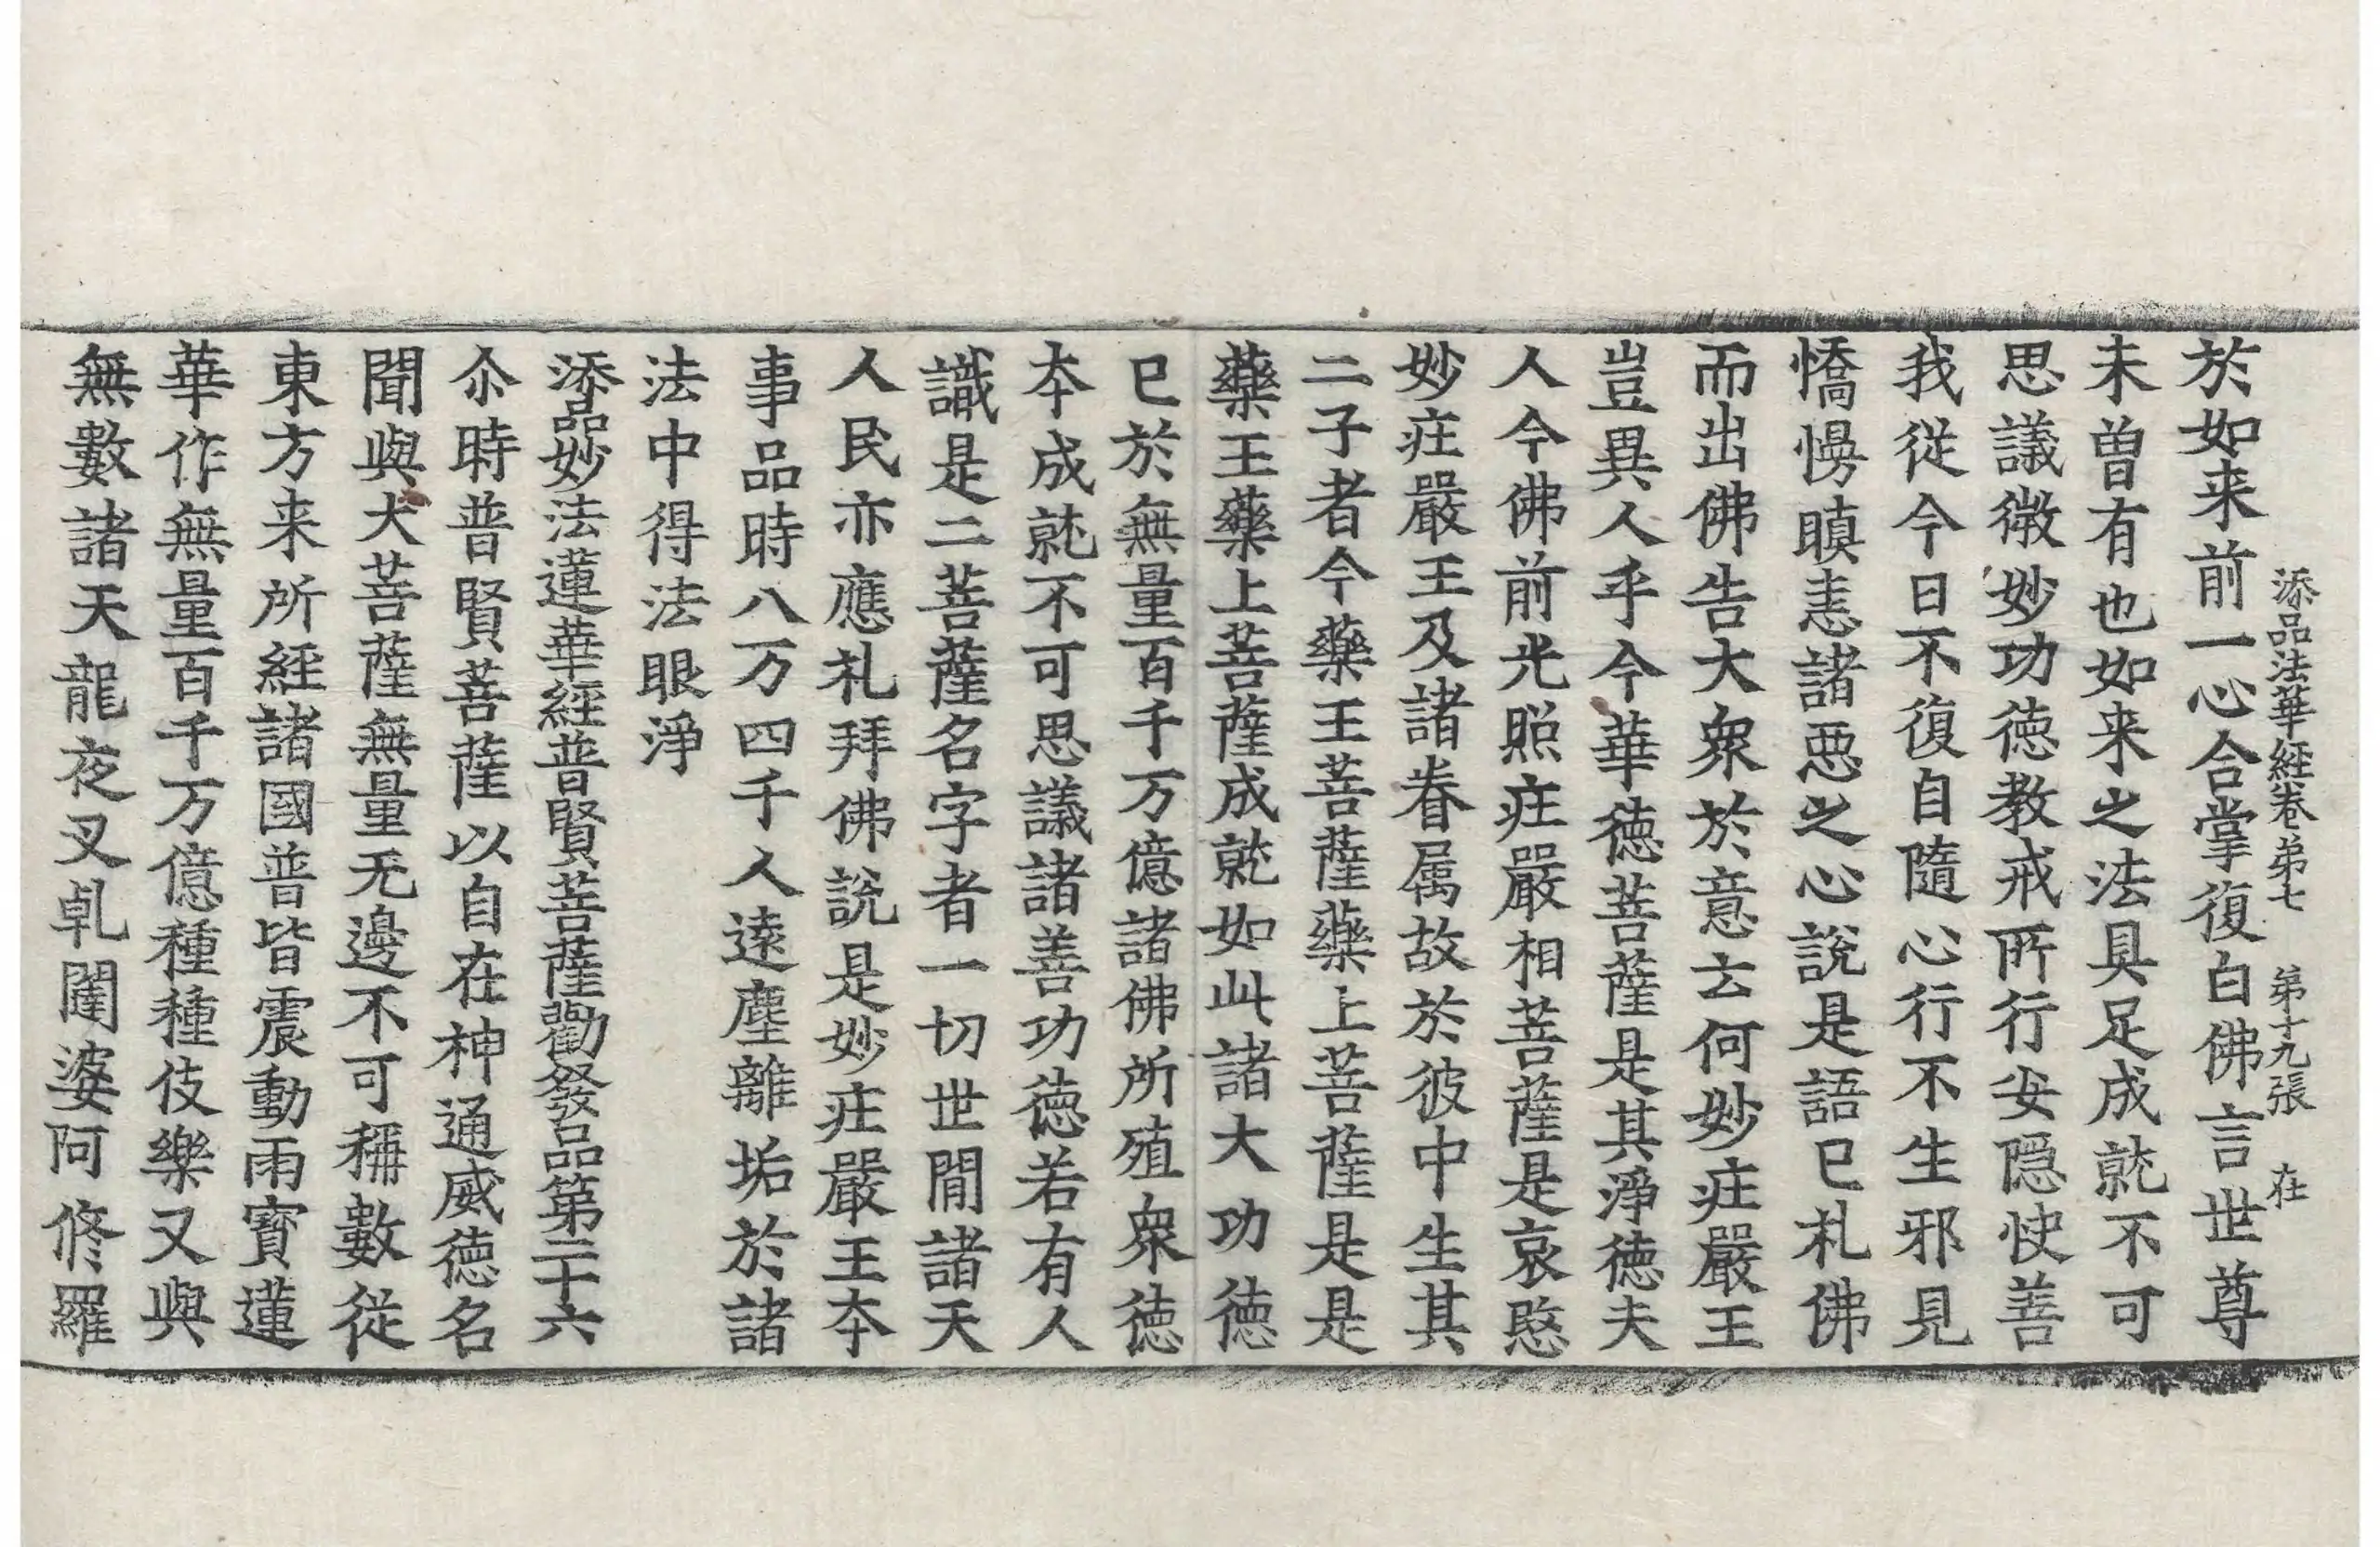 添品法華経卷第七 第十九張 在
於如来前一心合掌復白佛言世尊
未曽有也如来之法具足成就不可
思議微妙功徳教戒所行安隠快善
我従今日不復自隨心行不生邪見
憍慢瞋恚諸惡之心說是語已礼佛
而出佛告大衆於意云何妙莊嚴王
豈異人乎今華徳菩薩是其淨徳夫
人今佛前光照莊嚴相菩薩是哀愍
妙莊嚴王及諸眷属故於彼中生其
二子者今藥王菩薩藥上菩薩是是
藥王藥上菩薩成就如此諸大功徳
已於無量百千万億諸佛所殖衆徳
本成就不可思議諸善功徳若有人
識是二菩薩名字者一切世間諸天
人民亦應礼拜佛說是妙莊嚴王本
事品時八万四千人逺塵離垢於諸
法中得法眼淨
添品妙法蓮華經普賢菩薩勸發品第二十六
尒時普賢菩薩以自在神通威徳名
聞與大菩薩無量无邊不可稱數従
東方来所經諸國普皆震動雨寳蓮
華作無量百千万億種種伎樂又與
無數諸天龍夜叉乹闥婆阿脩羅